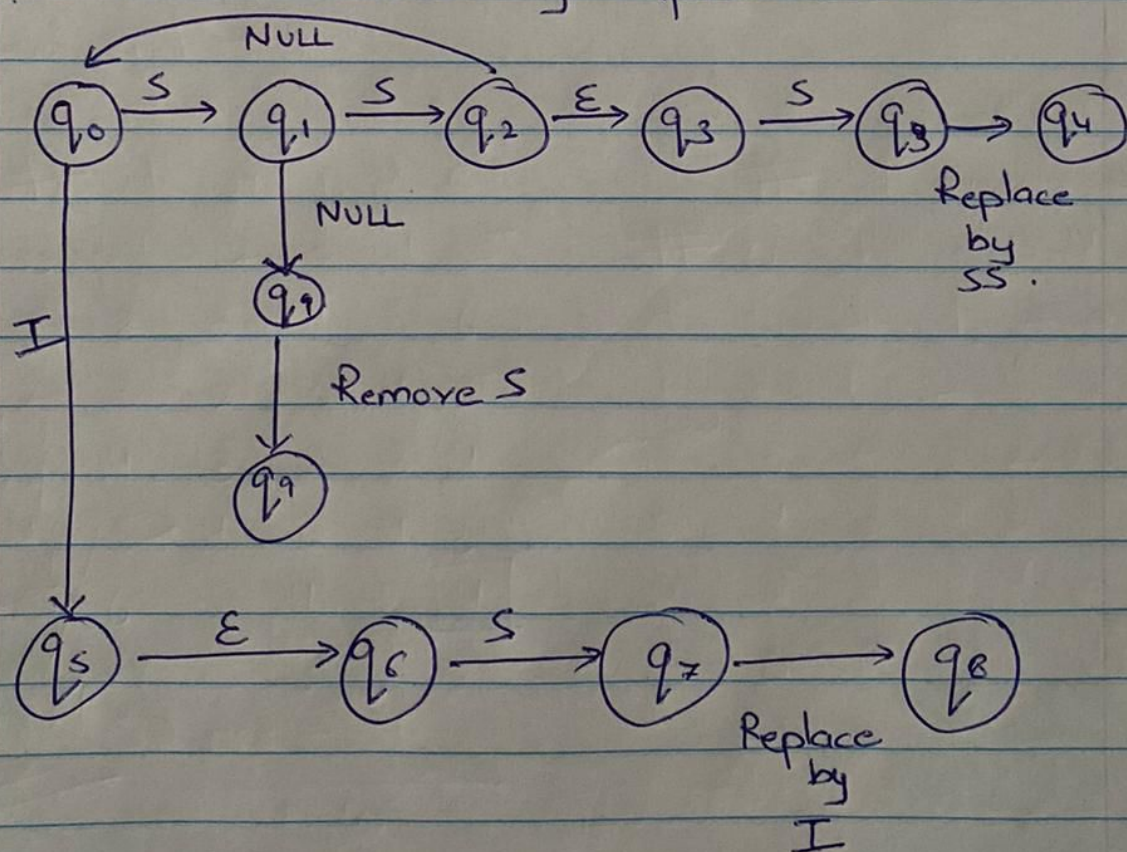 NULL
q0 S q1 S q2 ε q3 S q3 q4
Replace
by
SS.
NULL
q9
I
Remove S
q9
q5 ε q6 S q7 q8
Replace
by
I